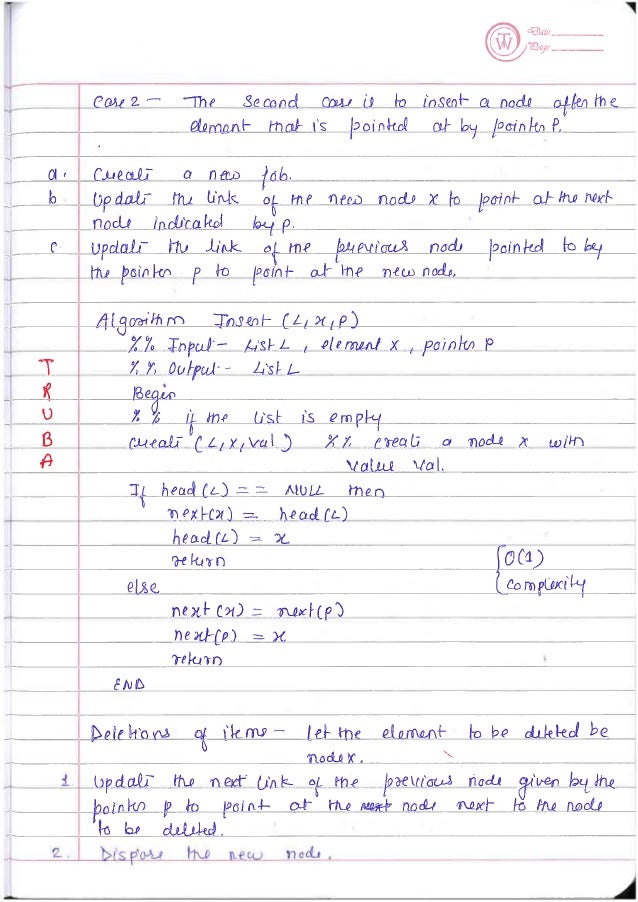 Date
Page
Case 2 - The second case is to insert a node after the
element that is pointed at by pointer P.
a. Create a new job.
b Update the link of the new node x to point at the next
node indicated by p.
c Update the link of the previous node pointed to by
the pointer p to point at the new node.
Algorithm Insert (L, x, p)
%% Input - List L, element x, pointer P
%% Output - List L
Begin
%% if the list is empty
create (L, x, val) %% create a node x with
value val.
If head (L) == NULL then
next(x) = head (L)
head (L) = x
return
O(1)
Complexity
else
next (x) = next(p)
next(p) = x
return
END
T
R
U
B
A
Deletions of items - let the element to be deleted be
node x.
1 Update the next link of the previous node given by the
pointer p to point at the next node next to the node
to be deleted.
2. Dispose the new node.